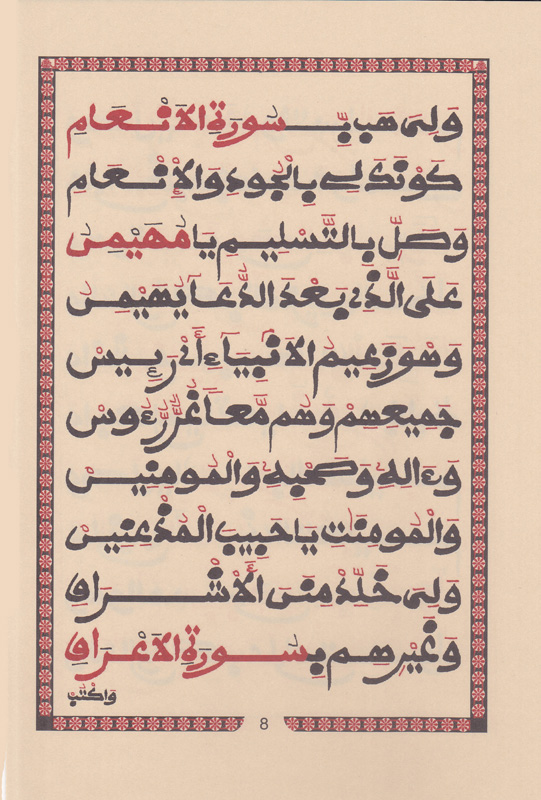 وَلِىَ هَب بِّسُورَةِ الاَنْعَامِ
كَوْنَكَ لِے بِالْجُودِ وَالاِنْعَامِ
وَصَلِّ بِالتَّسْلِيمِ يَا مُهَيْمِنُ
عَلَى الَّذِے بَعْدَ الدُّعَآ يُهَيْمِنُ
وَهْوَ زَعِيمُ الاَنْبِيَآءِ أَىْ رَئِيسْ
جَمِيعِهِمْ وَهُم مَّعًا غُرٌّ رُءُوسْ
وَءَالِهِ وَصَحْبِهِ وَالْمُومِنِينْ
وَالْمُومِنَٰتِ يَا حَبِيبَ الْمُذْعِنِينْ
وَلِىَ خَلِّدْ مِنَنَ الاَشْرَافِ
وَغَيْرِهِم بِسُورَةِ الاَعْرَافِ
وَاكْتُبْ
8